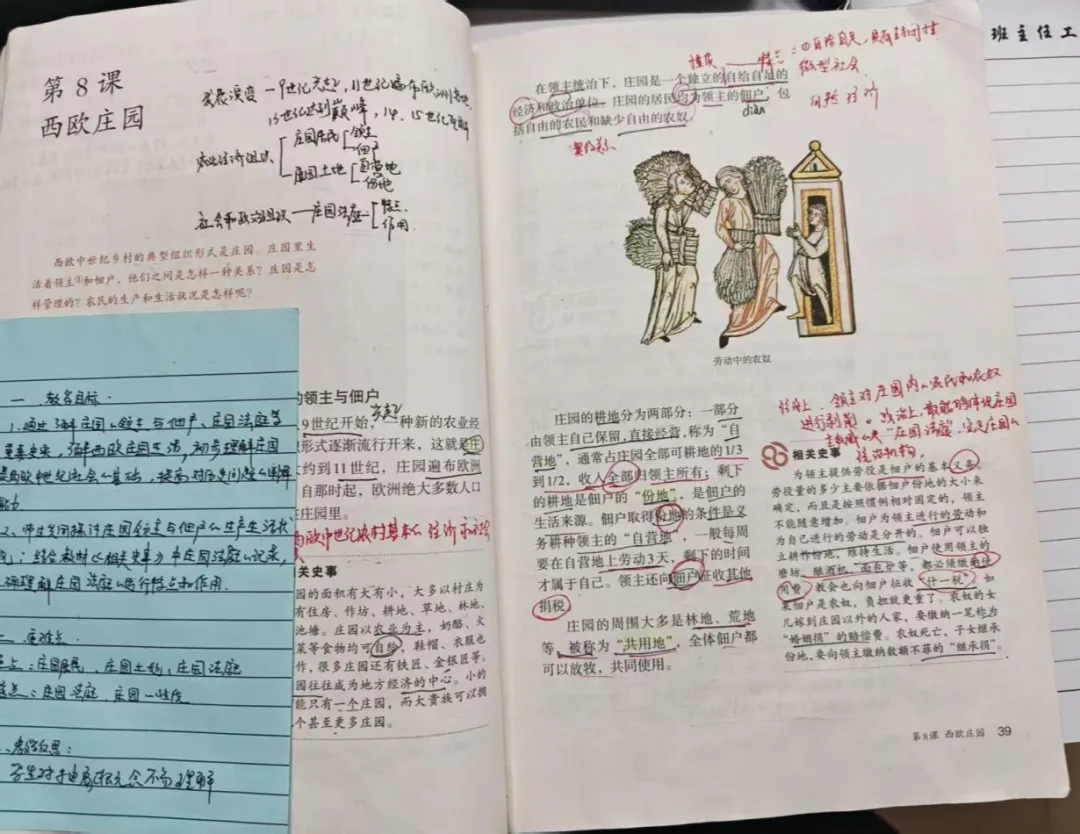 第8课
西欧庄园
发展演变 — 9世纪兴起，11世纪遍布欧洲各地，
13世纪达到巅峰，14、15世纪
农业经济组织
庄园居民
领主
佃户
庄园土地
自营地
份地
社会和政治组织 — 庄园法庭
特点
作用
西欧中世纪乡村的典型组织形式是庄园。庄园里生
活着领主①和佃户，他们之间是怎样一种关系？庄园是怎
样管理的？农民的生产和生活状况是怎样呢？
一 教学目标
1.通过了解庄园的领主与佃户、庄园法庭等
重要史实，了解西欧庄园生活，初步理解庄园
是西欧中世纪社会的基础，提高对历史问题的理解
能力
2、师生共同探讨庄园领主与佃户的生产生活状
况；结合教材《相关史事》中庄园法庭的记录，
正确理解庄园法庭的运行特点和作用.
二 重难点
重点：庄园居民、庄园土地、庄园法庭
难点：庄园法庭、庄园的性质
三、教学反思：
学生对于 概念不易理解
的领主与佃户
9世纪开始，一种新的农业经
兴起
形式逐渐流行开来，这就是庄
大约到11世纪，庄园遍布欧洲
自那时起，欧洲绝大多数人口
在庄园里。
西欧中世纪农村基本的经济和社会
相关史事
园的面积有大有小，大多以村庄为
有住房、作坊、耕地、草地、林地、
池塘。庄园以农业为主，奶酪、火
菜等食物均可自给，鞋帽、衣服也
作，很多庄园还有铁匠、金银匠等。
园往往成为地方经济的中心。小的
能只有一个庄园，而大贵族可以拥
个甚至更多庄园。
性质 — 特点：①自给自足，具有封闭性
微型社会
自然经济
在领主统治下，庄园是一个独立的自给自足的
经济和政治单位。庄园的居民均为领主的佃户，包
diàn
括自由的农民和缺少自由的农奴。
契约关系
劳动中的农奴
庄园的耕地分为两部分：一部分
由领主自己保留，直接经营，称为“自
营地”，通常占庄园全部可耕地的1/3
到1/2，收入全部归领主所有；剩下
的耕地是佃户的“份地”，是佃户的
生活来源。佃户取得份地的条件是义
务耕种领主的“自营地”，一般每周
要在自营地上劳动3天，剩下的时间
才属于自己。领主还向佃户征收其他
捐税。
庄园的周围大多是林地、荒地
等，被称为“共用地”，全体佃户都
可以放牧，共同使用。
经济上，领主对庄园内的农民和农奴
进行剥削。政治上，最能够体现庄园
主权威的是“庄园法庭”，它是庄园的
统治机构。
相关史事
为领主提供劳役是佃户的基本义务。
劳役量的多少主要依据佃户份地的大小来
确定，而且是按照惯例相对固定的，领主
不能随意增加。佃户为领主进行的劳动和
为自己进行的劳动是分开的。佃户可以独
立耕作份地，维持生活。佃户使用领主的
磨坊、酿酒机、面包炉等，都必须缴纳使
用费。教会也向佃户征收“什一税”。如
果佃户是农奴，负担就更重了。农奴的女
儿嫁到庄园以外的人家，要缴纳一笔称为
“婚姻捐”的赔偿费。农奴死亡，子女继承
份地，要向领主缴纳数额不菲的“继承捐”。
第8课 西欧庄园 39
班主任工